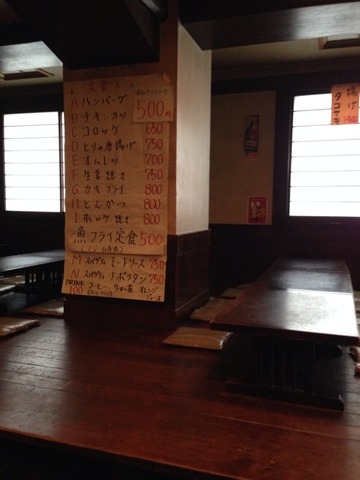 定食メニュー
A ハンバーグ 500円
B チキンカツ
C コロッケ 650
D とりの唐揚げ 750
E オムレツ 700
F 生姜焼き 750
G カキフライ 800
H とんかつ 800
I ホルモン焼き 800
魚フライ定食 500
M スパゲティ ミートソース 750
N スパゲティ ナポリタン 750
DRINK 100 コーヒー ウーロン茶 オレンジジュース
揚げ
タコヤキ